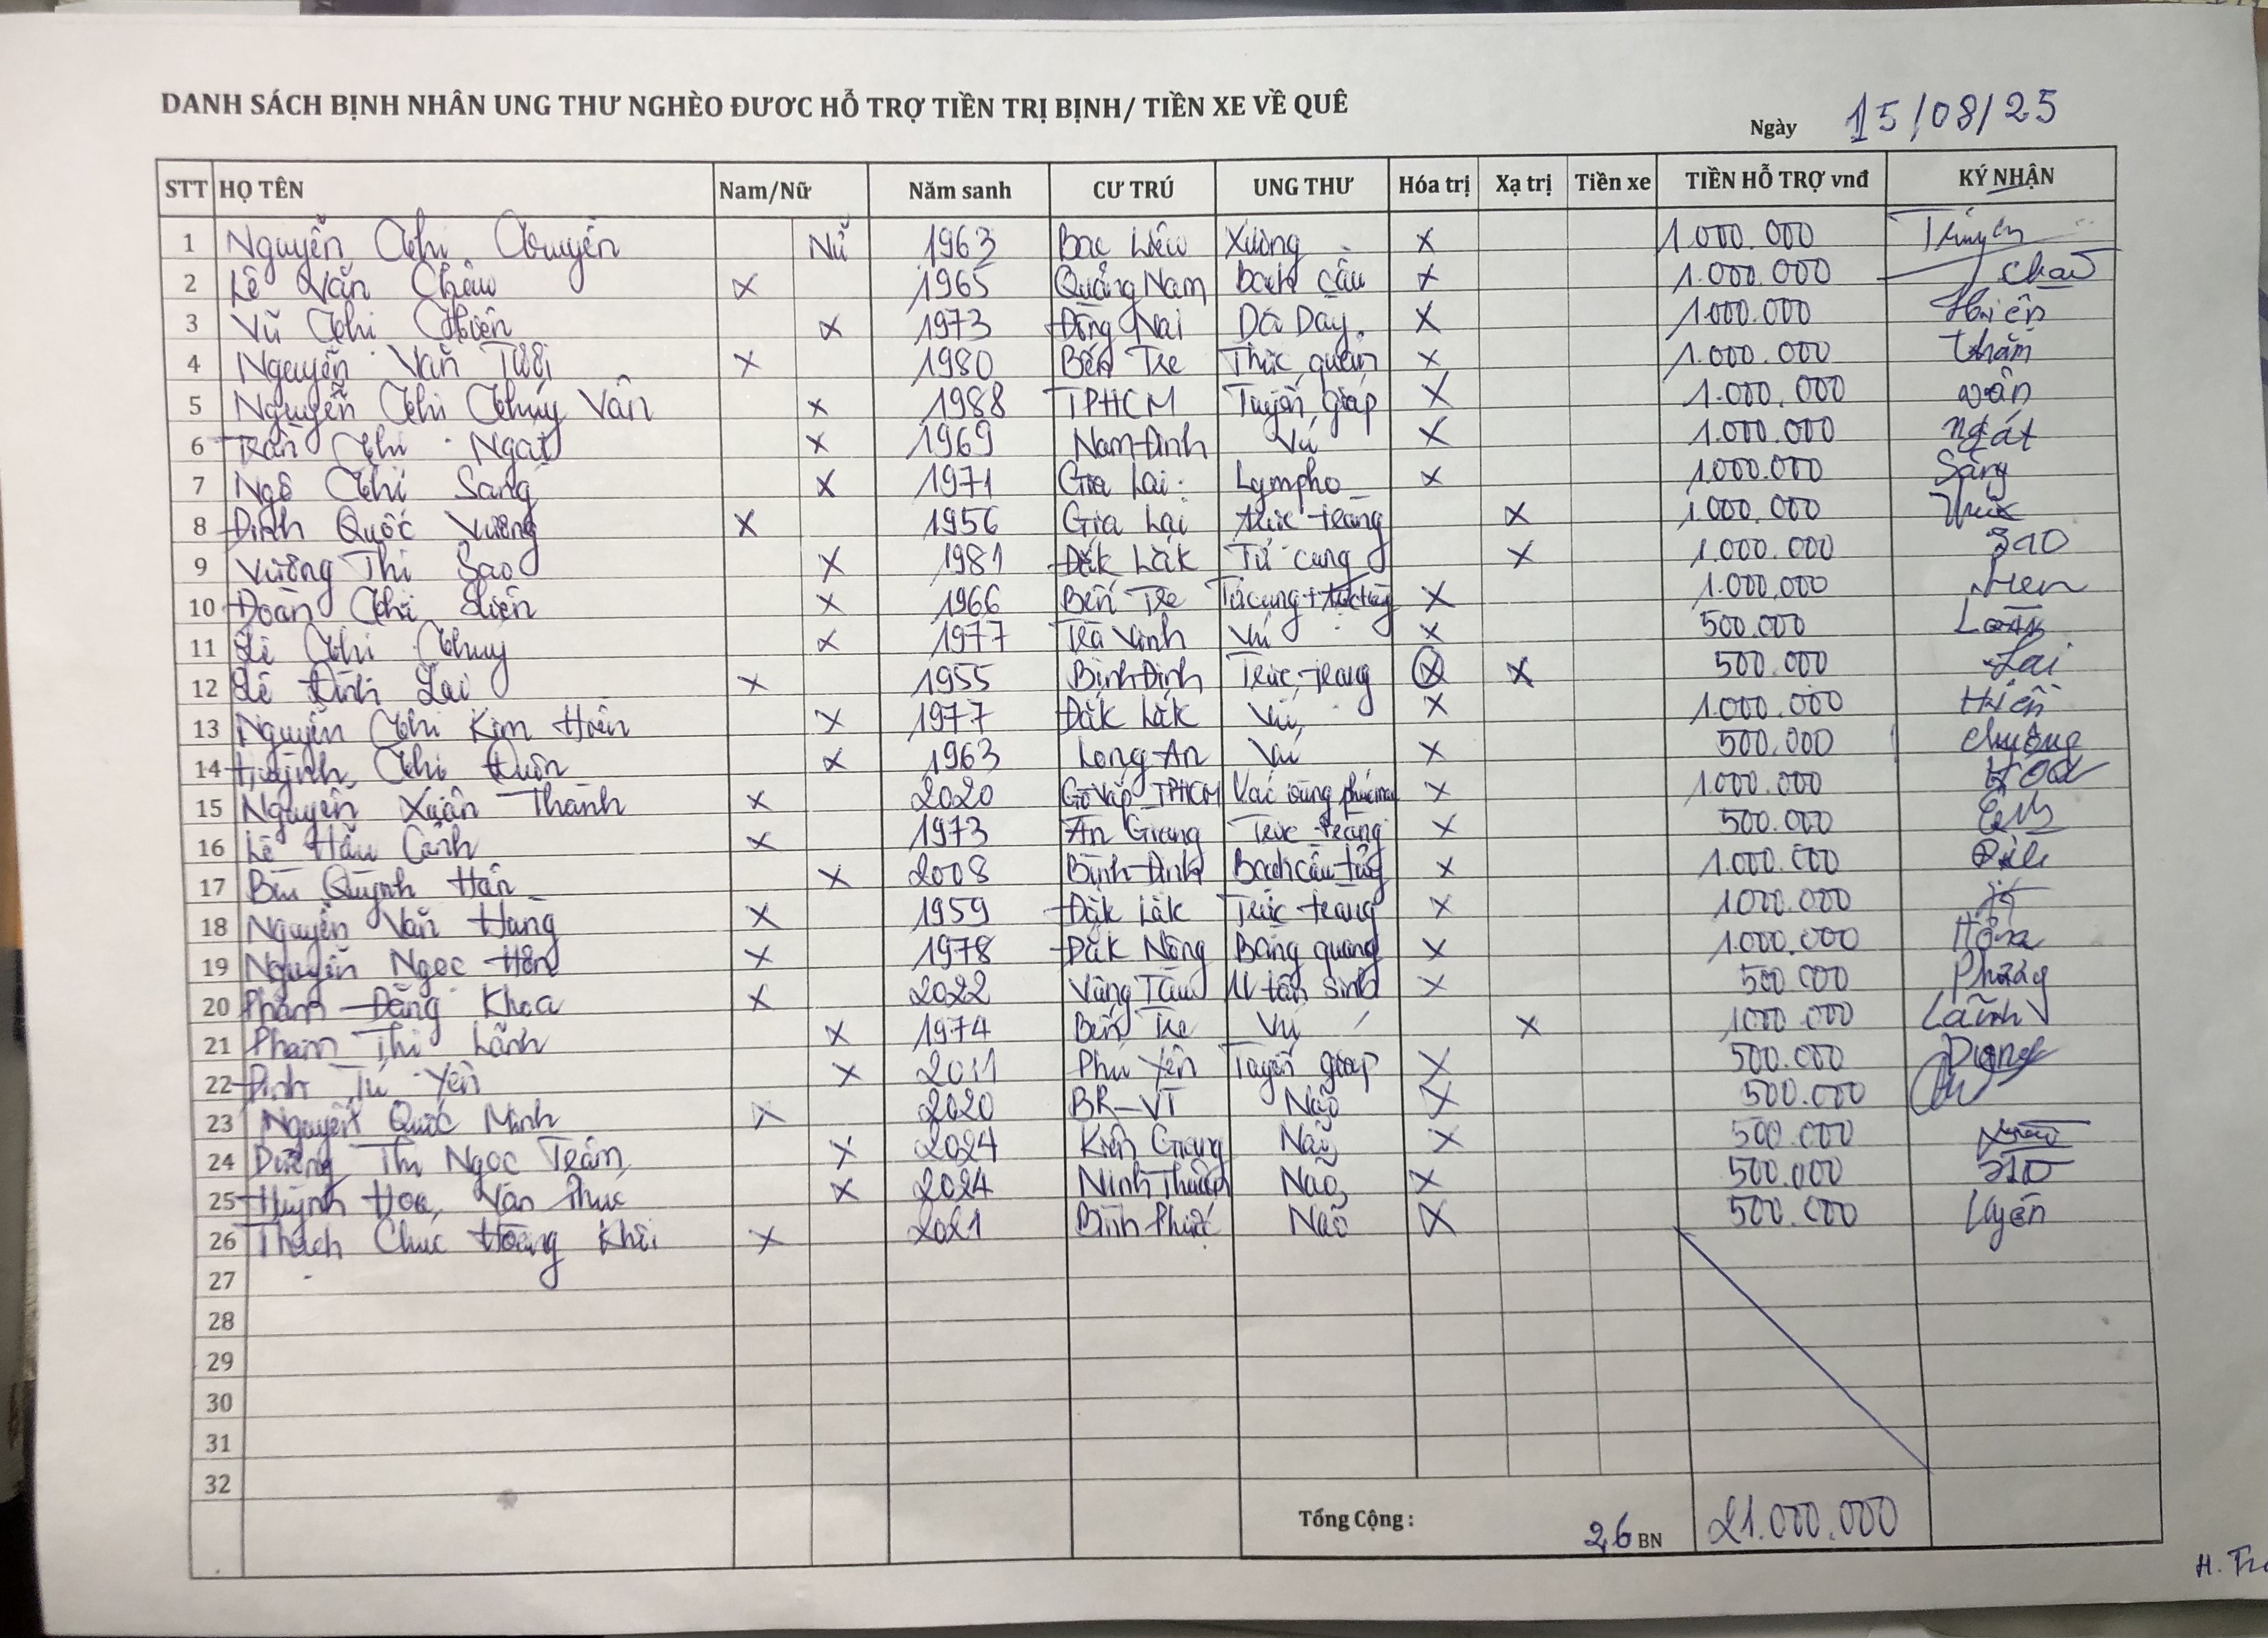 DANH SÁCH BỊNH NHÂN UNG THƯ NGHÈO ĐƯƠC HỖ TRỢ TIỀN TRỊ BỊNH/ TIỀN XE VỀ QUÊ
Ngày 15/08/25
STT HỌ TÊN Nam/Nữ Năm sanh CƯ TRÚ UNG THƯ Hóa trị Xạ trị Tiền xe TIỀN HỖ TRỢ vnđ KÝ NHẬN
1 Nguyễn Thị Truyền Nữ 1963 Bạc Liêu Xương X 1.000.000
2 Lê Văn Châu X 1965 Quảng Nam Bạch cầu X 1.000.000 Châu
3 Vũ Thị Hiên X 1973 Đồng Nai Dạ Dày X 1.000.000 Hiên
4 Nguyễn Văn Tười X 1980 Bến Tre Thực quản X 1.000.000 thắm
5 Nguyễn Thị Thúy Vân X 1988 TPHCM Tuyến giáp X 1.000.000 vân
6 Trần Thị Ngát X 1969 Nam Định Vú X 1.000.000 ngát
7 Ngô Thị Sang X 1971 Gia Lai Lympho X 1.000.000 Sang
8 Đinh Quốc Vương X 1956 Gia Lai trực tràng X 1.000.000
9 Vương Thị Sao X 1981 Đắk Lắk Tử cung X 1.000.000 Sao
10 Đoàn Thị Liên X 1966 Bến Tre Tử cung + trực tràng X 1.000.000
11 Lê Thị Thuy X 1977 Trà Vinh Vú X 500.000 Loan
12 Lê Đình Lai X 1955 Bình Định Trực tràng X X 500.000 Lai
13 Nguyễn Thị Kim Hiền X 1977 Đắk Lắk Vú X 1.000.000 Hiền
14 Huỳnh Thị Đuôn X 1963 Long An Vú X 500.000
15 Nguyễn Xuân Thành X 2020 Gò Vấp TPHCM X 1.000.000
16 Lê Hữu Cảnh X 1973 An Giang Trực tràng X 500.000
17 Bùi Quỳnh Hân X 2008 Bình Định Bạch cầu tủy X 1.000.000
18 Nguyễn Văn Hang X 1959 Đắk Lắk Trực tràng X 1.000.000
19 Nguyễn Ngọc Hôn X 1978 Đắk Nông Bàng quang X 1.000.000
20 Phạm Đăng Khoa X 2022 Vũng Tàu sinh X 500.000
21 Phạm Thị Lãnh X 1974 Bến Tre Vú X 1.000.000 Lãnh
22 Đinh Tú Yên X 2011 Phú Yên Tuyến giáp X 500.000
23 Nguyễn Quốc Minh X 2020 BR-VT Não X 500.000
24 Dương Thị Ngọc Trâm X 2024 Kiên Giang Não X 500.000
25 Huỳnh Hoa Vân Phúc X 2024 Ninh Thuận Não X 500.000
26 Thạch Chúc Hoàng Khôi X 2021 Bình Phước Não X 500.000 Uyên
27
28
29
30
31
32
Tổng Cộng : 26 BN 21.000.000